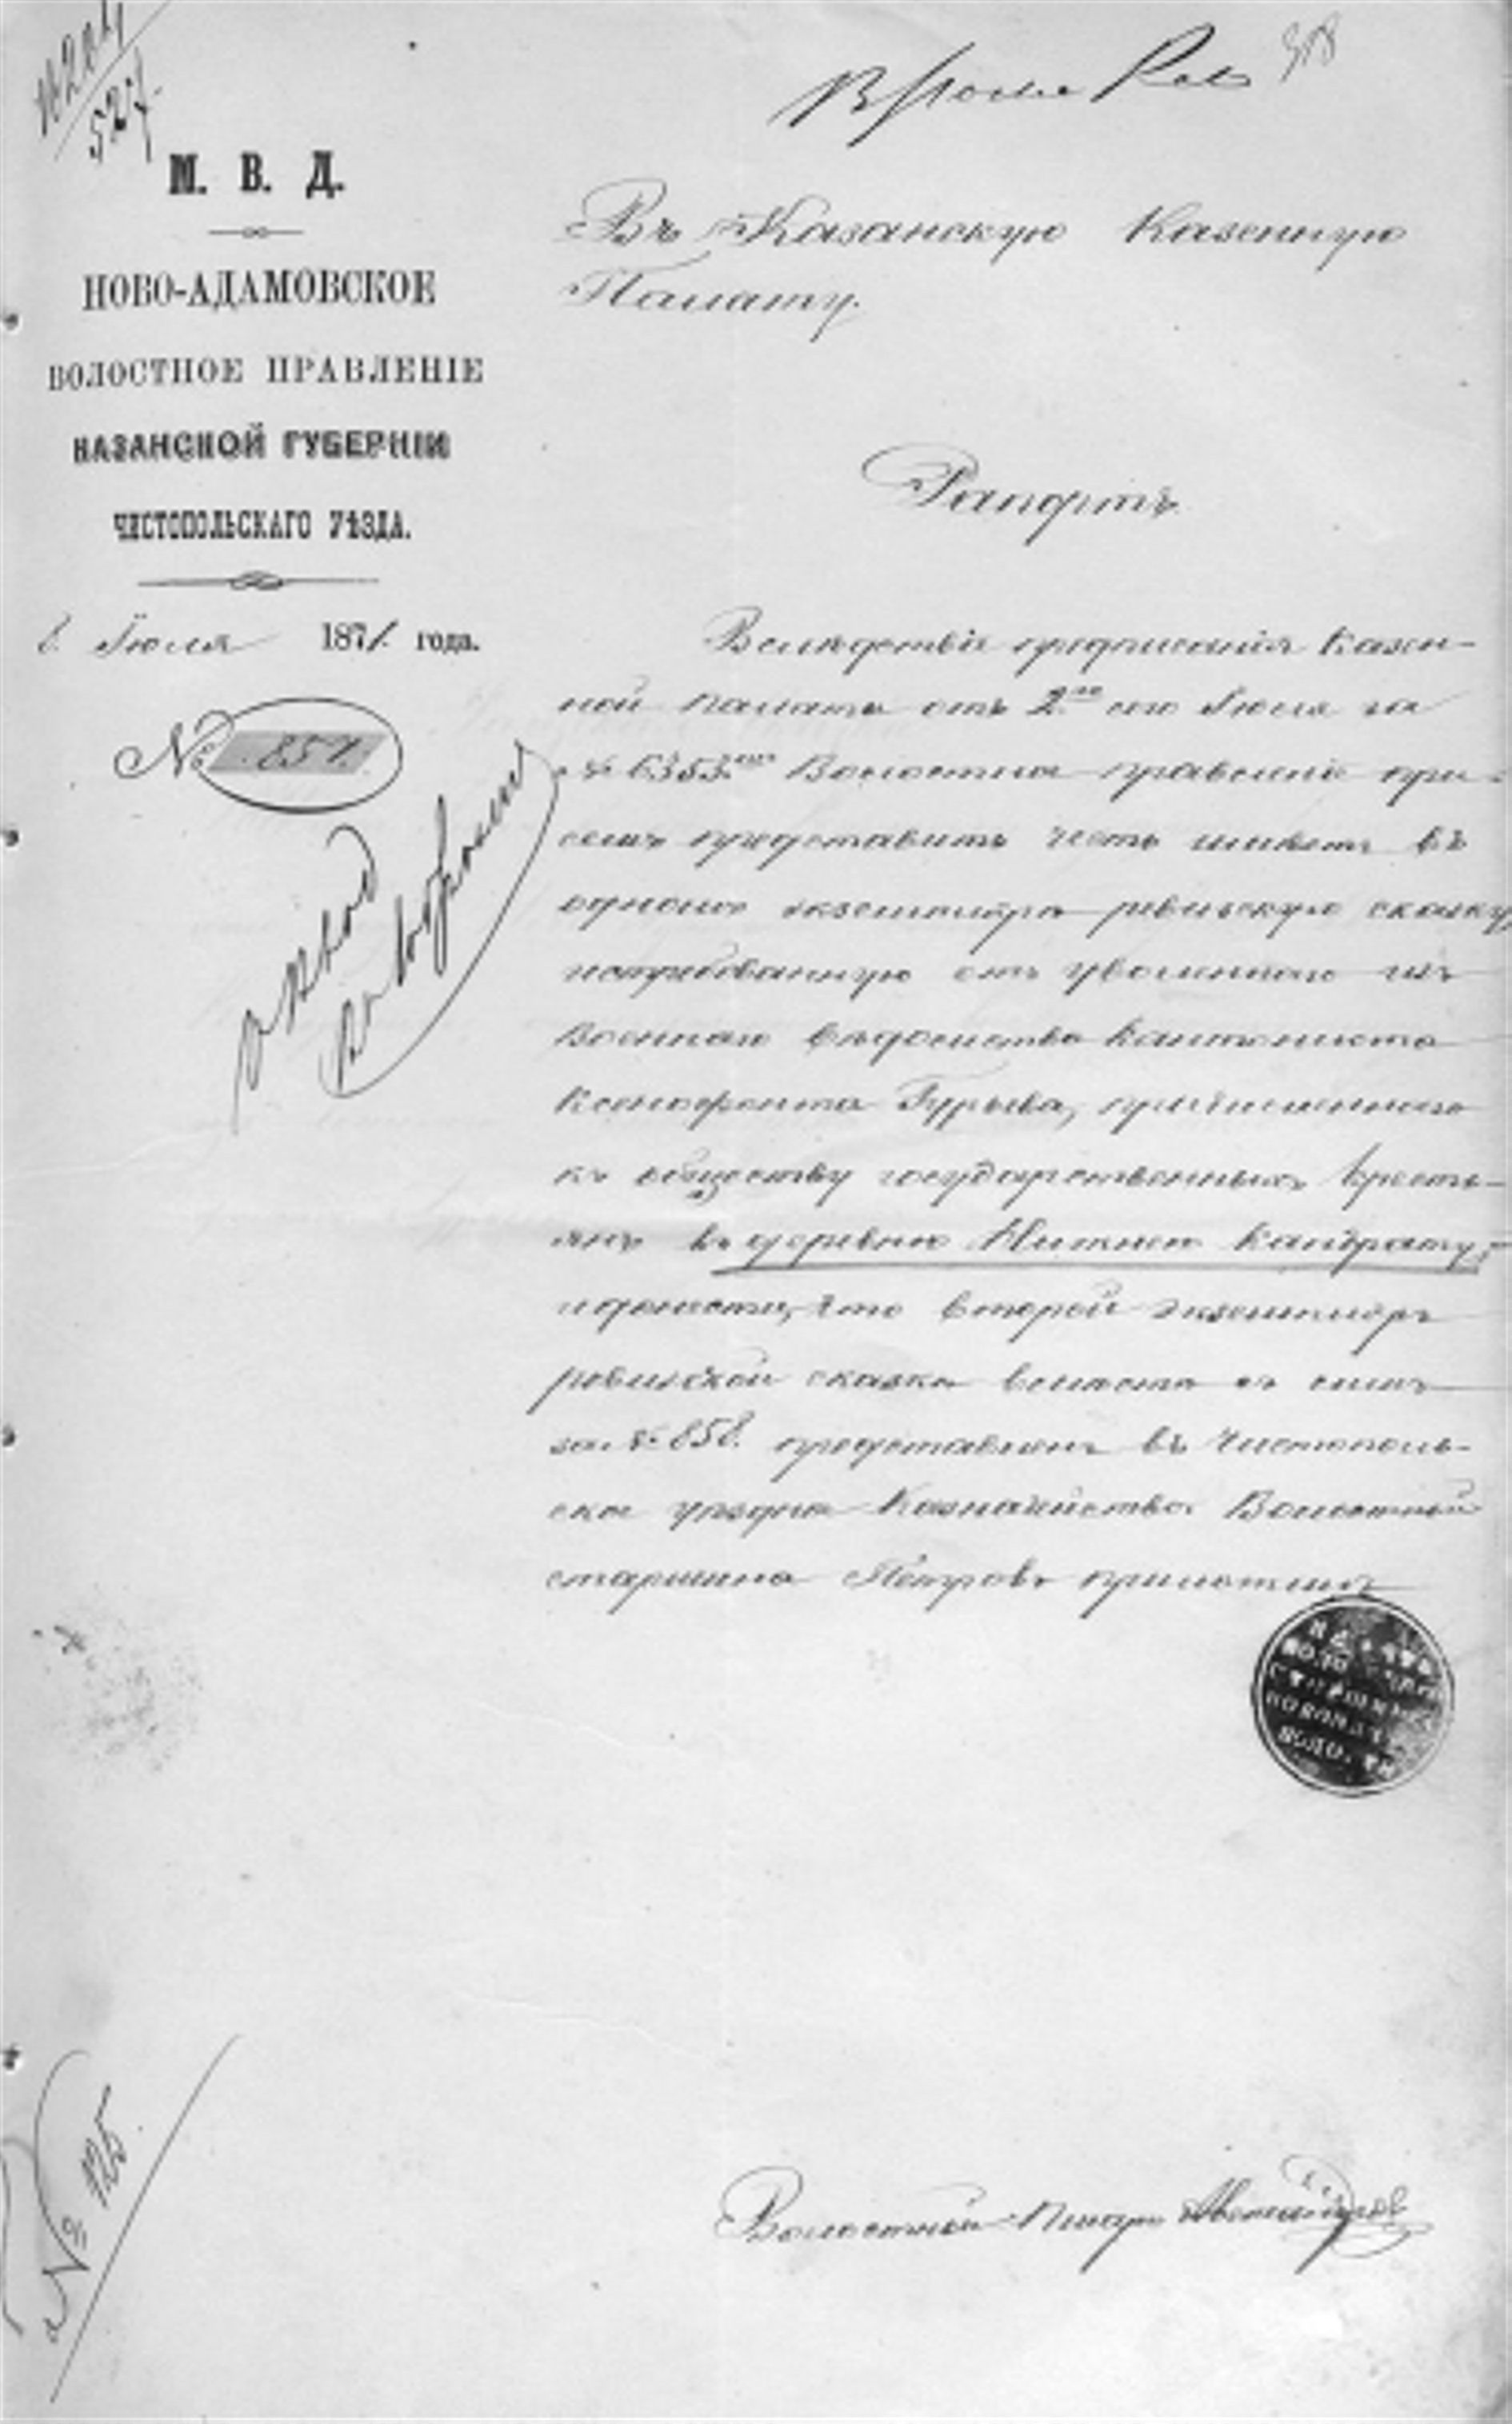 М. В. Д.
НОВО-АДАМОВСКОЕ
ВОЛОСТНОЕ ПРАВЛЕНІЕ
КАЗАНСКОЙ ГУБЕРНІИ
ЧИСТОПОЛЬСКАГО УѢЗДА.
Іюля 1871 года.
№ 857.
Въ Казанскую Казенную
Палату.
Рапортъ
Вслѣдствіе предписанія Казен-
ной палаты отъ 2го сего Іюля за
№ 6353 Волостное правленіе при
семъ представить честь имѣетъ въ
одномъ экземплярѣ ревизскую сказку
истребованную отъ уволеннаго изъ
Военнаго вѣдомства Кантониста
Ксенофонта Гурьева, причисленнаго
къ обществу государственныхъ кресть-
янъ въ деревню Нижнею Кандрату,
и донести, что второй экземпляръ
ревизской сказки вмѣстѣ съ симъ
за № 858. представленъ въ Чистополь-
ское уѣздное Казначейство. Волостной
старшина Петровъ приложилъ
Волостной Писарь
№ 125